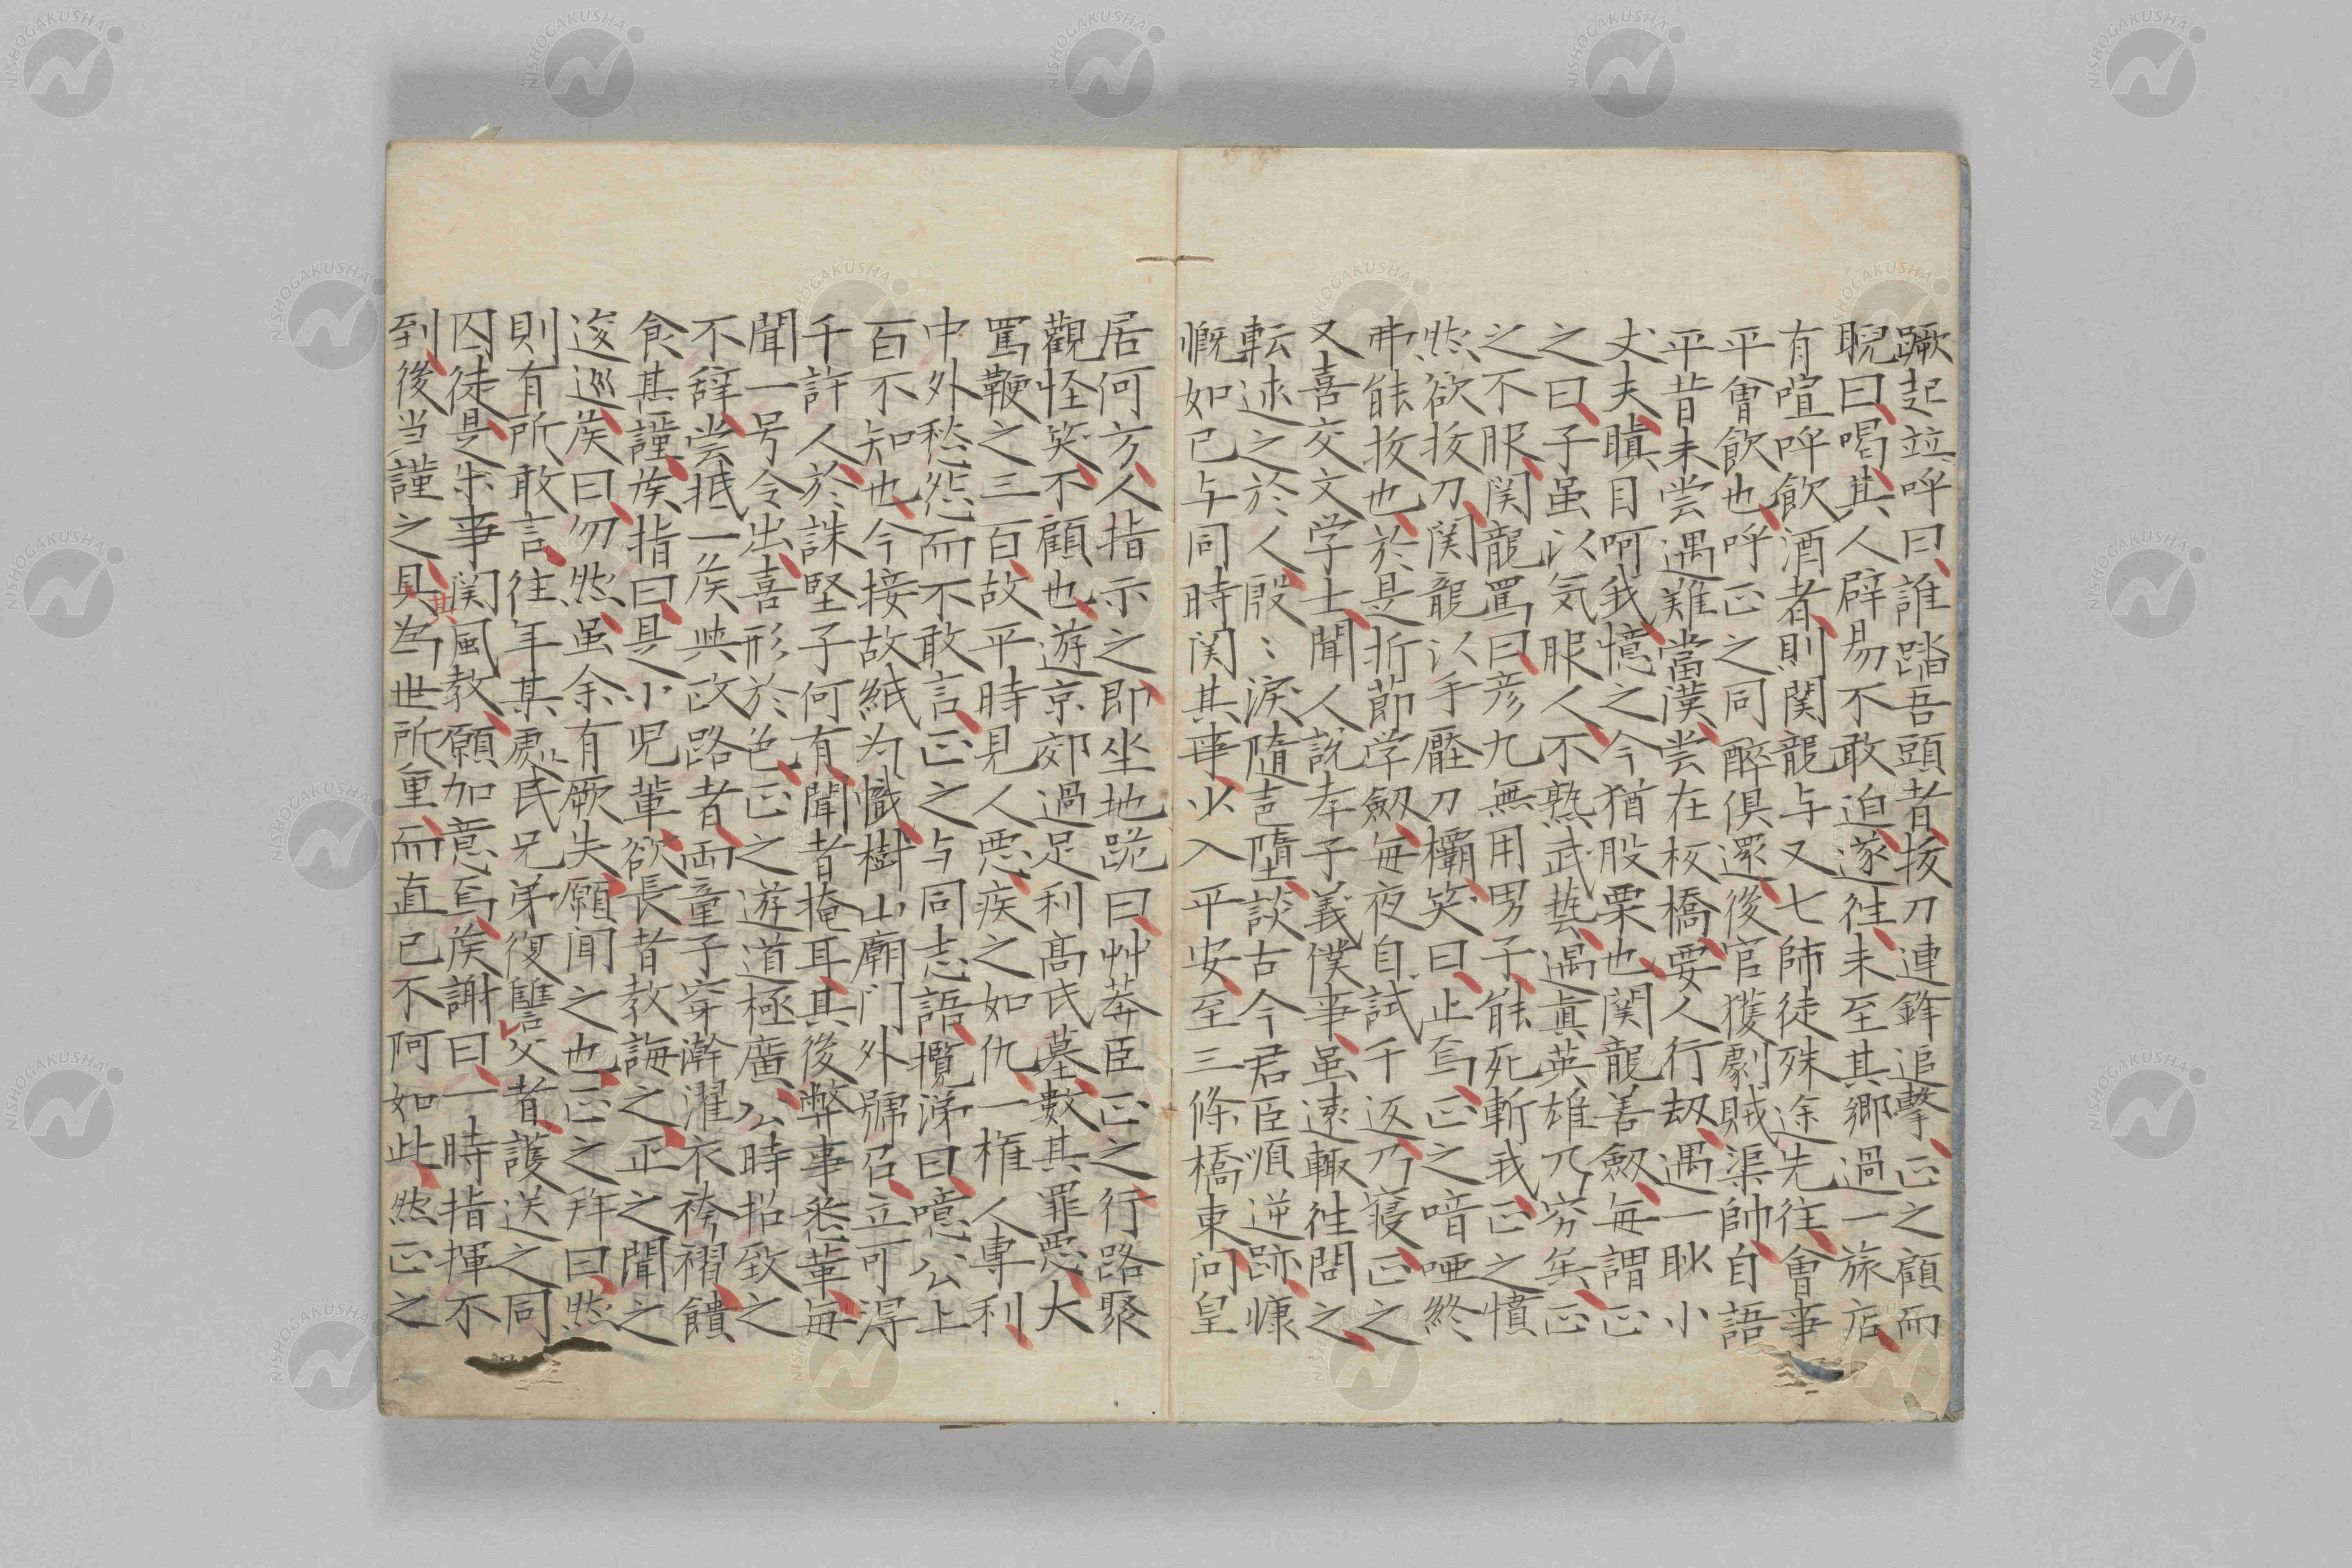 蹶起竝呼曰誰踏吾頭者抜刀連鋒追擊正之顧而
睨曰喝其人辟易不敢迫遂徃未至其郷過一旅店
有喧呼飲酒者則関龍与又七師徒殊途先往會事
平會飲也呼正之同醉俱還後官獲劇賊渠帥自語
平昔未嘗遇難當漢嘗在板橋要人行刼遇一眇小
丈夫瞋目呵我憶之今猶股栗也関龍善劔毎謂正
之曰子虽以気服人不熟武藝遇真英雄乃窮矣正
之不服関龍罵曰彦九無用男子能死斬我正之憤
然欲抜刀関龍以手壓刀欛笑曰止焉正之喑唖終
弗能抜也於是折節学劔毎夜自試千返乃寝正之
又喜交文学士聞人説孝子義僕事虽遠輙徃問之
転述之於人殷〻涙隨言墮談古今君臣順逆跡慷
慨如已与同時関其事火入平安至三條橋東问皇
居何方人指示之即坐地跪曰艸莽臣正之行路聚
觀怪笑不顧也遊京郊過足利髙氏墓數其罪惡大
罵鞭之三百故平時見人惡疾之如仇一権人専利
中外愁怨而不敢言正之与同志語攬涕曰噫公上
百不知也今接故紙为幟樹山廟门外號召立可得
千許人於誅堅子何有聞者掩耳其後弊事悉革毎
聞一号令出喜形於色正之遊道極廣公時招致之
不辞嘗抵一矦典政路者両童子穿澣濯衣袴褶饋
食其謹矦指曰具小児輩欲長者教誨之正之聞之
逡巡矦曰勿然虽余有厥失願闻之也正之拜曰然
則有所敢言往年其處民兄弟復讐父者護送之同
囚徒是朱事関風教願加意焉矦謝曰一時指揮不
到後当謹之具為世所重而直已不阿如此然正之
其